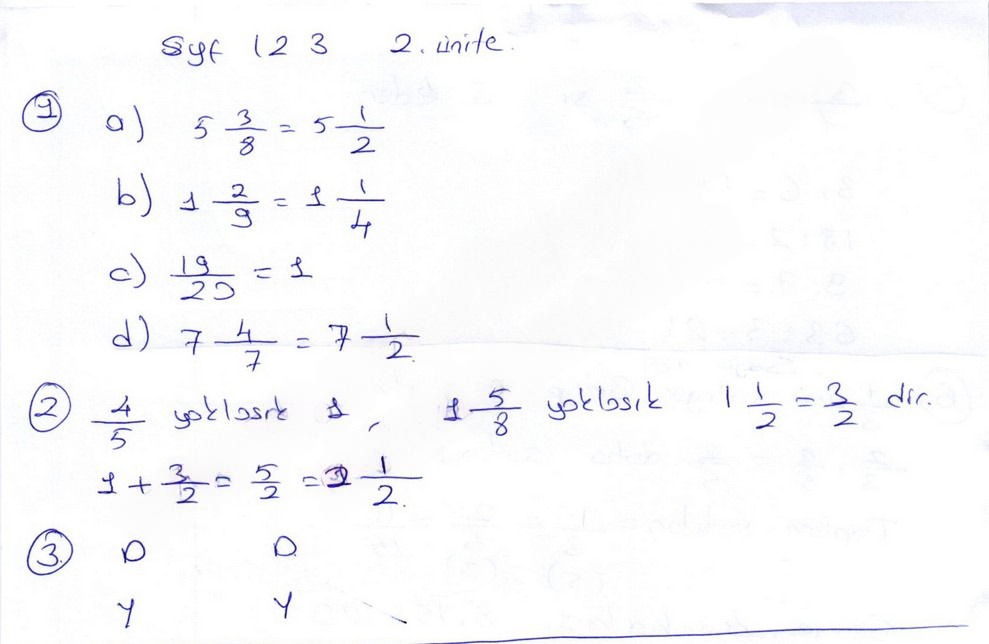 Syf 123 2. ünite.
1 a) 5 3/8 = 5 1/2
b) 1 2/9 = 1 1/4
c) 19/20 = 1
d) 7 4/7 = 7 1/2
2 4/5 yaklaşık 1, 1 5/8 yaklaşık 1 1/2 = 3/2 dir.
1 + 3/2 = 5/2 = 2 1/2.
3. D D
Y Y